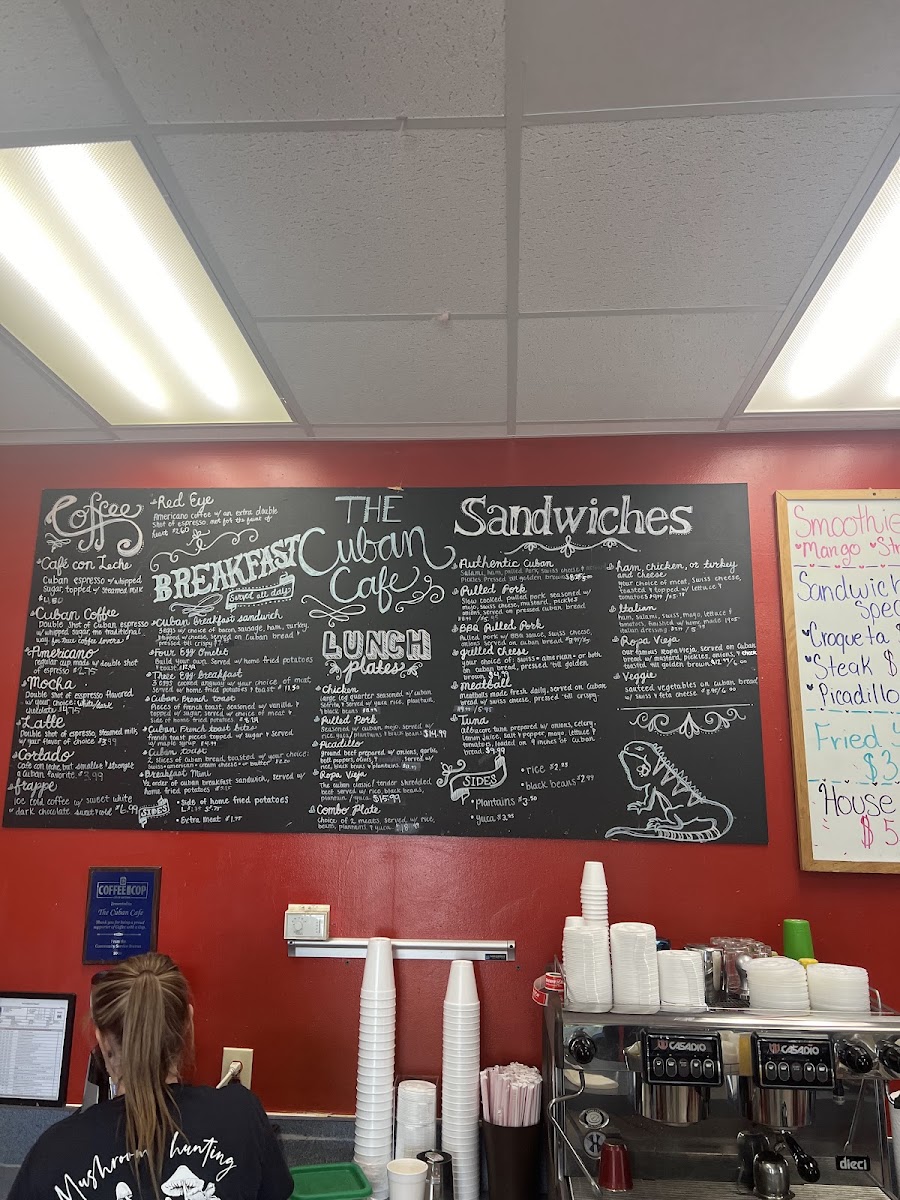 Coffee
Café con Leche
Cuban espresso w/ whipped
sugar, topped w/ steamed milk
Cuban Coffee
Double shot of Cuban espresso
w/ whipped sugar, the traditional
way for true coffee lovers!
Americano
regular cup made w/ double shot
of espresso $2.75
Mocha
Double shot of espresso flavored
w/ your choice: White/dark
chocolate $4.75
Latte
Double shot of espresso, steamed milk,
w/ your flavor of choice $3.99
Cortado
Cafe con leche, but smaller & stronger
a Cuban favorite $3.99
frappe
ice cold coffee w/ sweet white
or dark chocolate $6.99
Red Eye
Americano coffee w/ an extra double
shot of espresso. not for the faint of
heart $2.60
BREAKFAST
Served all day
Cuban Breakfast Sandwich
Eggs w/ choice of bacon, sausage, ham, turkey,
served on Cuban bread
Four Egg Omelet
Build your own. Served w/ home fried potatoes
& toast
Three Egg Breakfast
3 eggs cooked anyway w/ your choice of meat
served w/ home fried potatoes & toast $11.50
Cuban French Toast
Pieces of french toast, seasoned w/ vanilla &
topped w/ sugar, served w/ choice of meat &
side of home fried potatoes.
Cuban French toast Bites
french toast pieces topped w/ sugar & served
w/ maple syrup
Cuban Toast
2 slices of Cuban bread, toasted w/ your choice:
swiss • american • cream cheese or butter
Breakfast Mini
1/2 order of cuban breakfast sandwich, served w/
home fried potatoes
SIDES
• Side of home fried potatoes
• Extra meat
THE
Cuban
Cafe
LUNCH
plates
Chicken
Large leg quarter seasoned w/ cuban
sofrito & served w/ yuca, rice, plantain,
& black beans
Pulled Pork
Seasoned w/ cuban mojo, served w/
rice, yuca, plantains & black beans $14.99
Picadillo
Ground beef prepared w/ onions, garlic,
bell peppers, olives, served w/
rice, black beans & plantains
Ropa Vieja
The cuban classic! tender shredded
beef served w/ rice, black beans,
plantain & yuca $15.99
Combo Plate
Choice of 2 meats, served w/ rice,
beans, plantains & yuca
Sandwiches
Authentic Cuban
Salami, ham, pulled pork, swiss cheese &
Pickles Pressed till golden brown
Pulled Pork
Slow cooked pulled pork seasoned w/
mojo, swiss cheese, mustard, pickles
onions, served on pressed cuban bread
BBQ Pulled Pork
Pulled pork w/ BBQ sauce, swiss cheese,
onions served on cuban bread
grilled Cheese
your choice of: swiss • american • or both
on cuban bread, pressed 'till golden
brown $4.99
Meatball
meatballs made fresh daily, served on cuban
bread w/ swiss cheese, pressed 'till crispy.
Tuna
Albacore tuna prepared w/ onions, celery,
lemon juice, salt & pepper, mayo, lettuce &
tomatoes, loaded on 9 inches of cuban
bread $9.99
SIDES
• rice
• black beans
• Plantains
• yuca
ham, chicken, or turkey
and cheese
Your choice of meat, Swiss cheese,
toasted & topped w/ lettuce &
tomatoes
Italian
ham, salami, swiss, mayo, lettuce &
tomatoes, finished w/ home made
italian dressing
Ropa Vieja
our famous Ropa Vieja, served on Cuban
bread w/ mustard, pickles, onions, &
toasted till golden brown
Veggie
sauteed vegetables on cuban bread
w/ swiss & feta cheese
Smoothie
Mango
Sandwich
spec
Croqueta
Steak $
Picadillo
Fried
$3
House
$5
COFFEE COP
The Cuban Cafe
Mushroom hunting
CASADIO
CASADIO
dieci